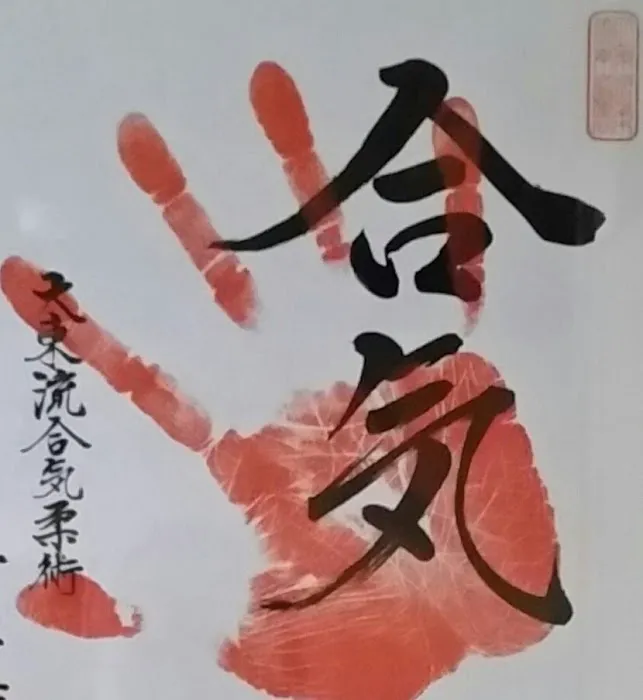 合気
大東流合気柔術